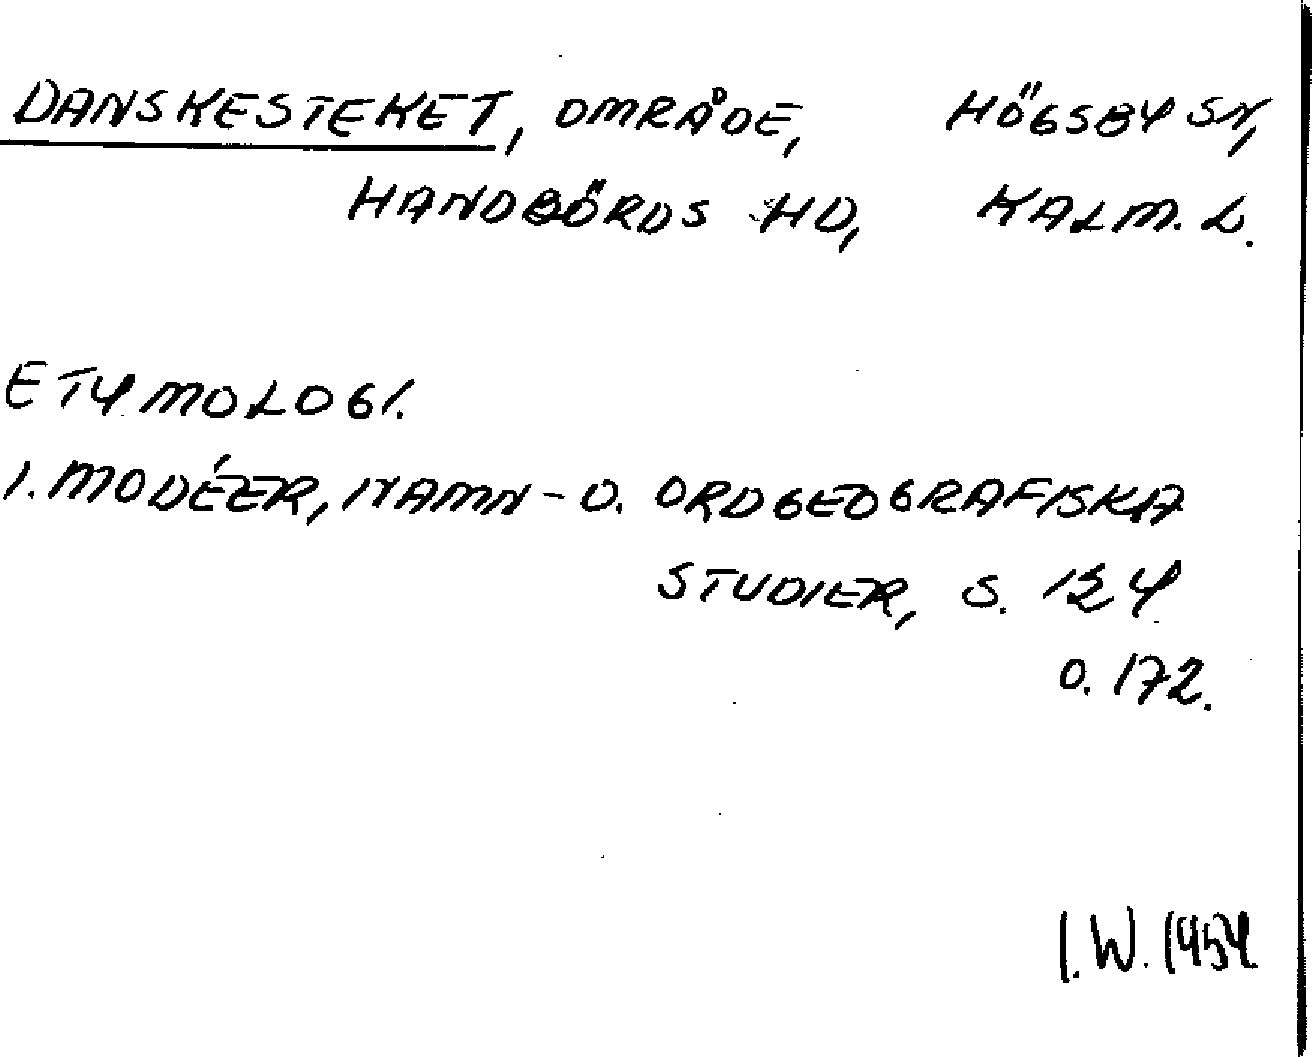 DANSKESTEKET, OMRÅDE, HÖGSBY SN,
HANDBÖRDS HD, KALM. L.
ETYMOLOGI.
I. MODÉER, NAMN- O. ORDGEOGRAFISKA
STUDIER, S. 124
O. 172.
I. W. 1954.